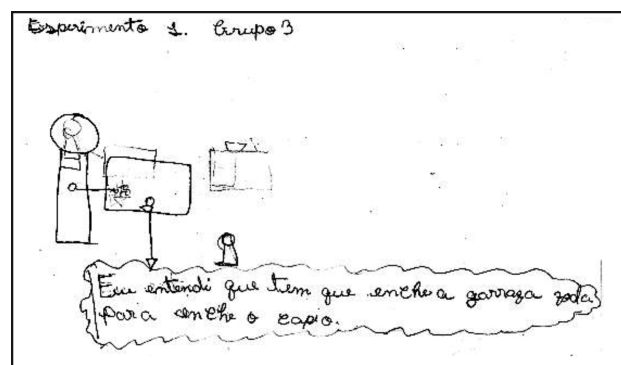 Experimento 1. Grupo 3
Eu entendi que tem que enche a garraga toda
para enche o copio.